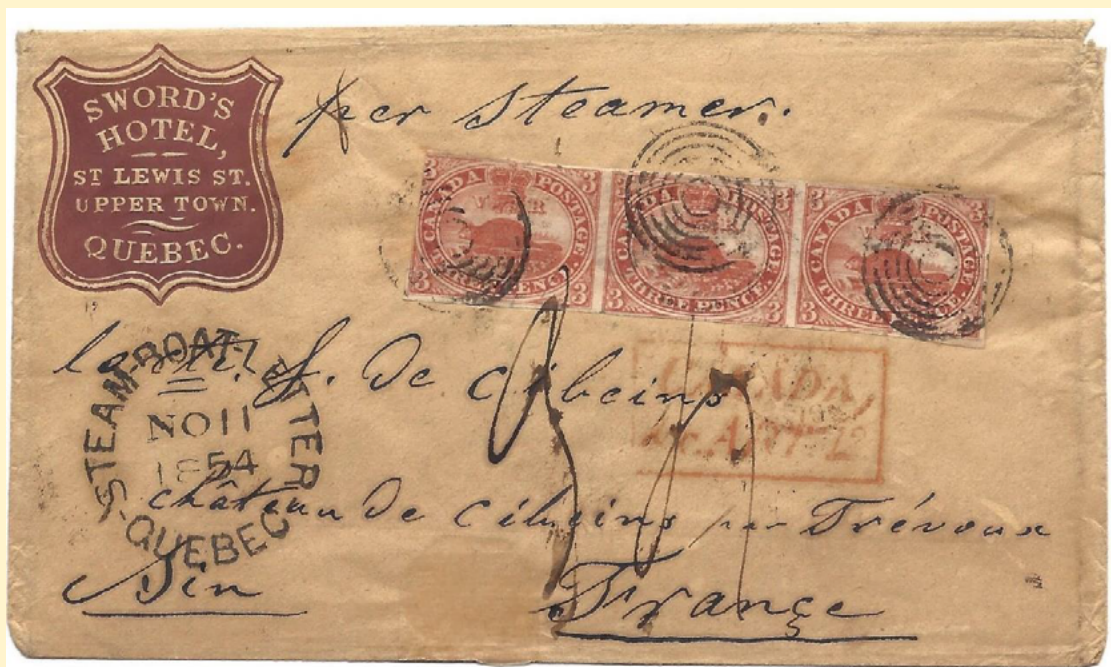 SWORD'S
HOTEL,
ST LEWIS ST.
UPPER TOWN.
QUEBEC.
per Steamer.
3 CANADA POSTAGE 3
3 THREE PENCE 3
3 CANADA POSTAGE. 3
V R
3 THREE PENCE. 3
3 CANADA POSTAGE 3
V R
3 THREE PENCE. 3
CANADA,
STEAM-BOAT-LETTER
NO 11
1854
QUEBEC
f. De Cibeins
château De Cibeins par Trévoux
France